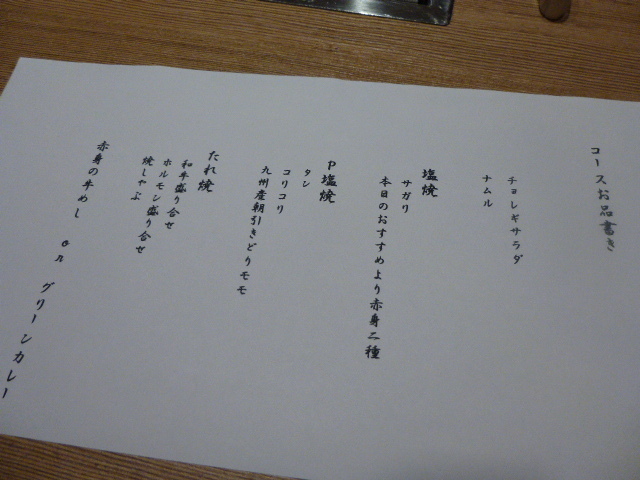 コースお品書き
チョレギサラダ
ナムル
塩焼
サガリ
本日のおすすめより赤身二種
P塩焼
タン
コリコリ
九州産朝引きどりモモ
たれ焼
和牛盛り合せ
ホルモン盛り合せ
焼しゃぶ
赤身の牛めし or グリーンカレー